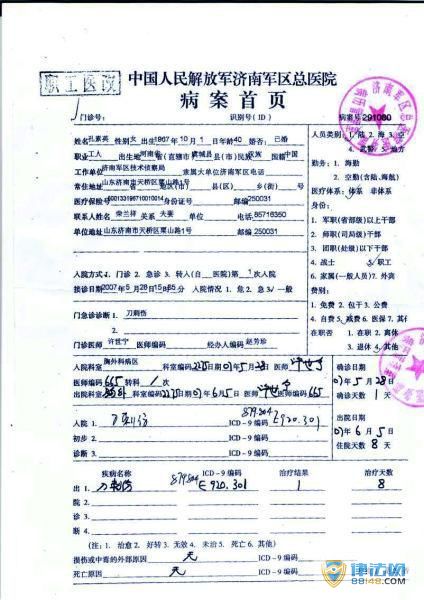 职工医疗
中国人民解放军济南军区总医院
病案首页
门诊号: 识别号(ID) 病案号 291080
姓名 孔素英 性别 女 出生 1967 年 10 月 1 日 年龄 40 婚否: 已婚
职业 工人 出生地 河南省(直辖市) 虞城县 县(市)民族 汉族 国籍 中国
工作单位 济南军区技术侦察局 隶属大单位 济南军区 电话
常住地址 山东济南市天桥区粟山路1号 县(区) 乡(街) 号
医疗保险号 600133196710010014 身份证号 邮编 250031
联系人姓名 荣兰祥 关系 夫妻 单位 电话 85716350
单位地址 山东济南市天桥区粟山路1号 邮编 250031
人员类别: 1. 陆 2. 海 3. 空
4. 武警 5. 地方
勤务: 1. 海勤
2. 空勤(含陆.海航)
医疗体系: 体系 非体系
身份:
1. 军职(省部级)以上干部
2. 师职(司局级)干部
3. 团职(处级)以下干部
4. 战士 5. 职工
6. 家属(一般人员) 7. 外宾
费别:
1. 免费 2. 包干 3. 公费
4. 自费 5. 减费 6. 医保 7. 其
在职否 1. 在职 2. 离休
3. 退休 4. 其他
入院方式 1. 门诊 2. 急诊 3. 转入(自 医院) 第 1 次入院
接诊日期 2007 年 5 月 28 日 15 时 55 分 入院情况 1. 危 2. 急 3. 一般
门急诊诊断 1. 刀刺伤
2.
门诊医师 许世宁 医师编码 经办人编码 赵芳珍
入院科室 胸外科病区 科室编码 225 日期 07 年 5 月 28 日 医师 许世宁
医师编码 665 转科 1 次
出院科室 科室编码 225 日期 07 年 6 月 5 日 医师 医师编码 665
确诊日期
07 年 5 月 28 日
确诊天数 1 天
出院日期
07 年 6 月 5 日
住院天数 8 天
入院 1. 刀刺伤 ICD-9 编码 879.804 E920.301
初步 2. ICD-9 编码
诊断 3. ICD-9 编码
疾病名称 ICD-9 编码 治疗结果 治疗天数
出 1. 刀刺伤 879.804 E920.301 1 8
院 2.
诊 3.
断 4.
(注: 1. 治愈 2. 好转 3. 无效 4. 未治 5. 死亡 6. 其他)
损伤或中毒的外部原因 无 ICD-9 编码
死亡原因 无 ICD-9 编码
律法网
88148.COM